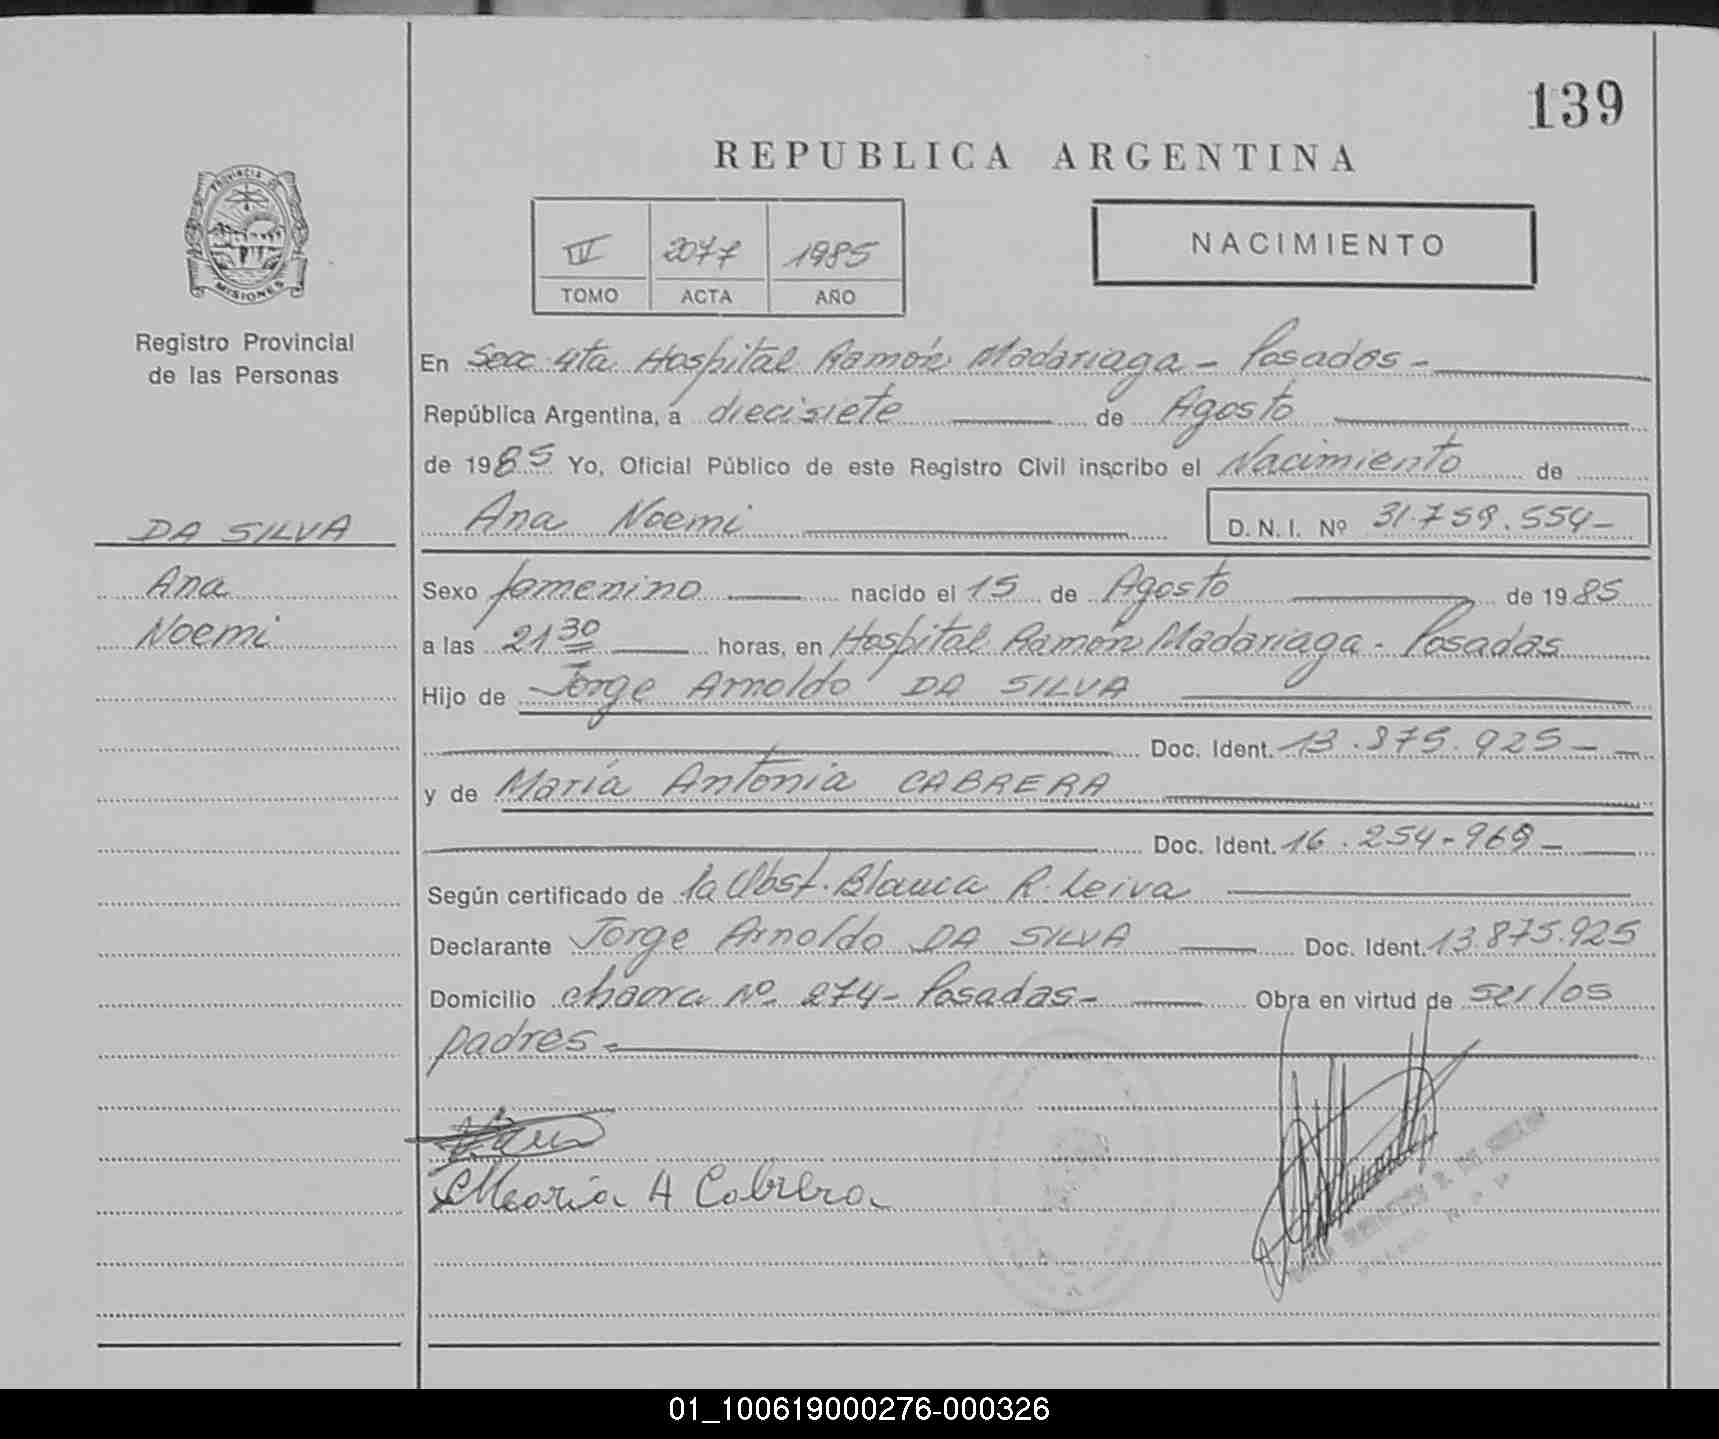 139
REPUBLICA ARGENTINA
PROVINCIA DE
MISIONES
Registro Provincial
de las Personas
IV 2077 1985
TOMO ACTA AÑO
NACIMIENTO
En Secc 4ta Hospital Ramón Madariaga - Posadas -
República Argentina, a diecisiete de Agosto
de 1985 Yo, Oficial Público de este Registro Civil inscribo el Nacimiento de
Ana Noemi D. N. I. Nº 31.759.554-
DA SILVA
Ana
Noemi
Sexo femenino nacido el 15 de Agosto de 1985
a las 21 30 horas, en Hospital Ramón Madariaga - Posadas
Hijo de Jorge Arnoldo DA SILVA
Doc. Ident. 13.875.925 -
y de María Antonia CABRERA
Doc. Ident. 16.254-969 -
Según certificado de la Obst. Blanca R. Leiva
Declarante Jorge Arnoldo DA SILVA Doc. Ident. 13.875.925
Domicilio chacra Nº 274 - Posadas - Obra en virtud de ser los
padres -
Maoria A Cabrera
01_100619000276-000326